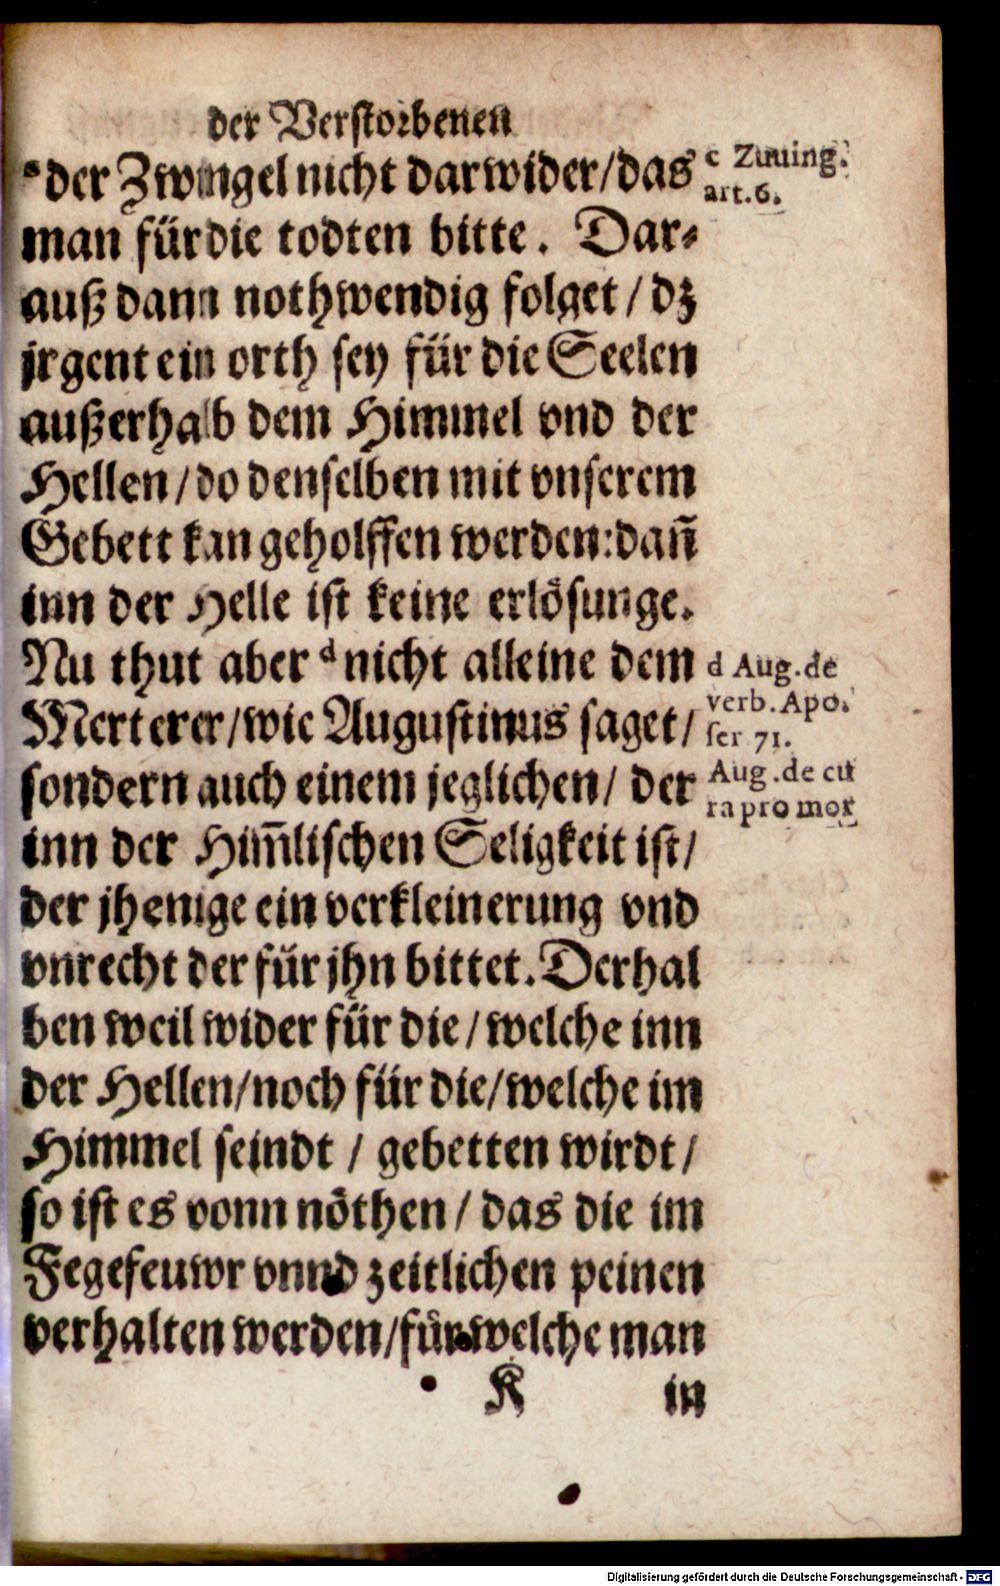 der Verstorbenen
c der Zwingel nicht darwider/das
man für die todten bitte. Dar-
auß dann nothwendig folget/ dz
jrgent ein orth sey für die Seelen
außerhalb dem Himmel vnd der
Hellen/do denselben mit vnserem
Gebett kan geholffen werden:dañ
inn der Helle ist keine erlösunge.
Nu thut aber d nicht alleine dem
Merterer/wie Augustinus saget/
sondern auch einem jeglichen/ der
inn der Him̃lischen Seligkeit ist/
der jhenige ein verkleinerung vnd
vnrecht der für jhn bittet. Derhal
ben weil wider für die/welche inn
der Hellen/noch für die/welche im
Himmel seindt / gebetten wirdt/
so ist es vonn nöthen/ das die im
Fegefeuwr vnnd zeitlichen peinen
verhalten werden/für welche man
K in
c Zuuing.
art.6.
d Aug.de
verb.Apo.
ser 71.
Aug.de cu
ra pro mor
Digitalisierung gefördert durch die Deutsche Forschungsgemeinschaft - DFG